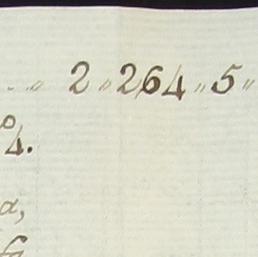 2 „ 264 „ 5 „
º4.
a,